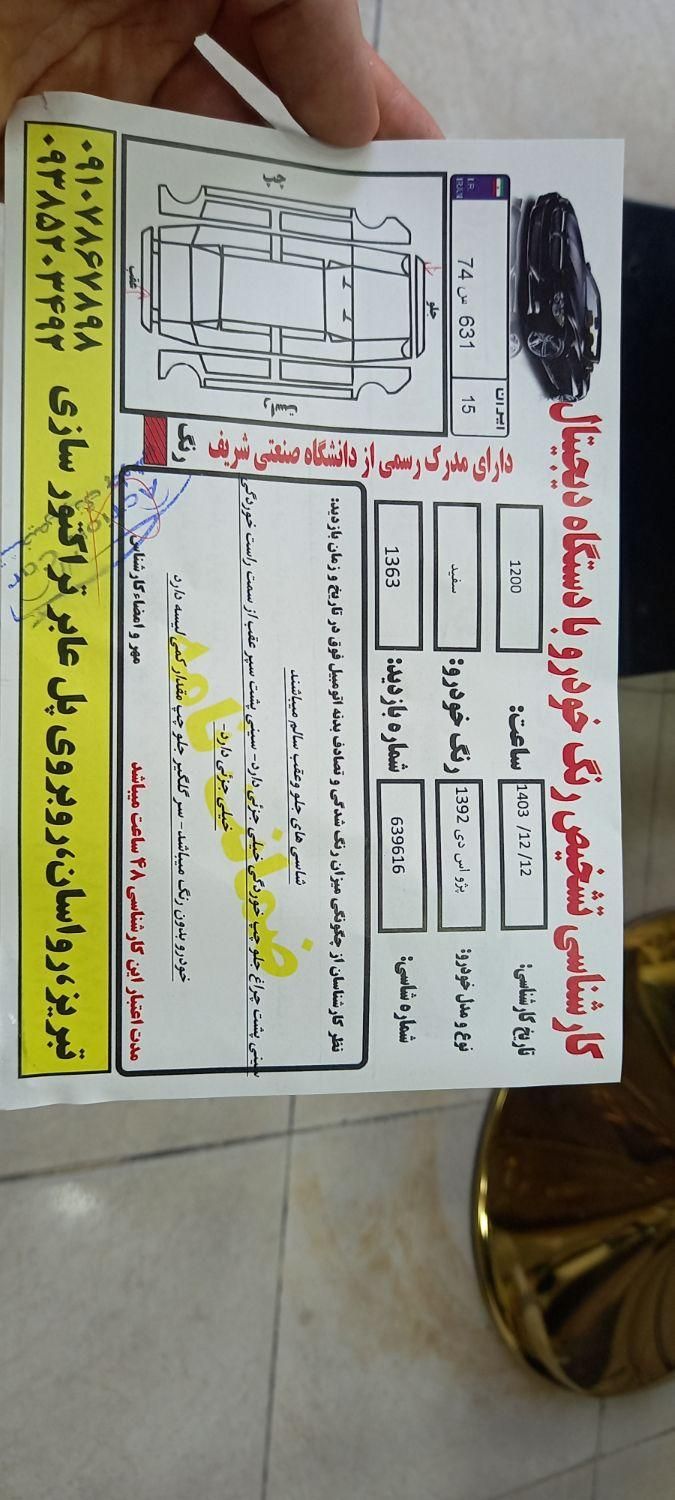 کارشناسی تشخیص رنگ خودرو با دستگاه دیجیتال
تاریخ کارشناسی: 1403 /12/ 12 ساعت: 1200
I.R. IRAN 74 س 631 ایران 15
نوع و مدل خودرو: پژو اس دی 1392 رنگ خودرو: سفید
شماره شاسی: 639616 شماره بازدید: 1363
دارای مدرک رسمی از دانشگاه صنعتی شریف
جلو
عقب
رنگ
نظر کارشناسان از چگونگی میزان رنگ شدگی و تصادف بدنه اتومبیل فوق در تاریخ و زمان بازدید:
شاسی های جلو وعقب سالم میباشند
سینی پشت چراغ جلو چپ خوردگی خیلی جزئی دارد- سینی پشت سپر عقب از سمت راست خوردگی
خیلی جزئی دارد-
خودرو بدون رنگ میباشد- سر گلگیر جلو چپ مقدار کمی لیسه دارد
ضمانت نامه
مدت اعتبار این کارشناسی ۴۸ ساعت میباشد
مهر و امضاء کارشناس
تبریز،رواسان،روبروی پل عابر تراکتور سازی
۰۹۱۰۷۸۶۷۸۹۸
۰۹۳۸۵۲۰۳۴۹۲